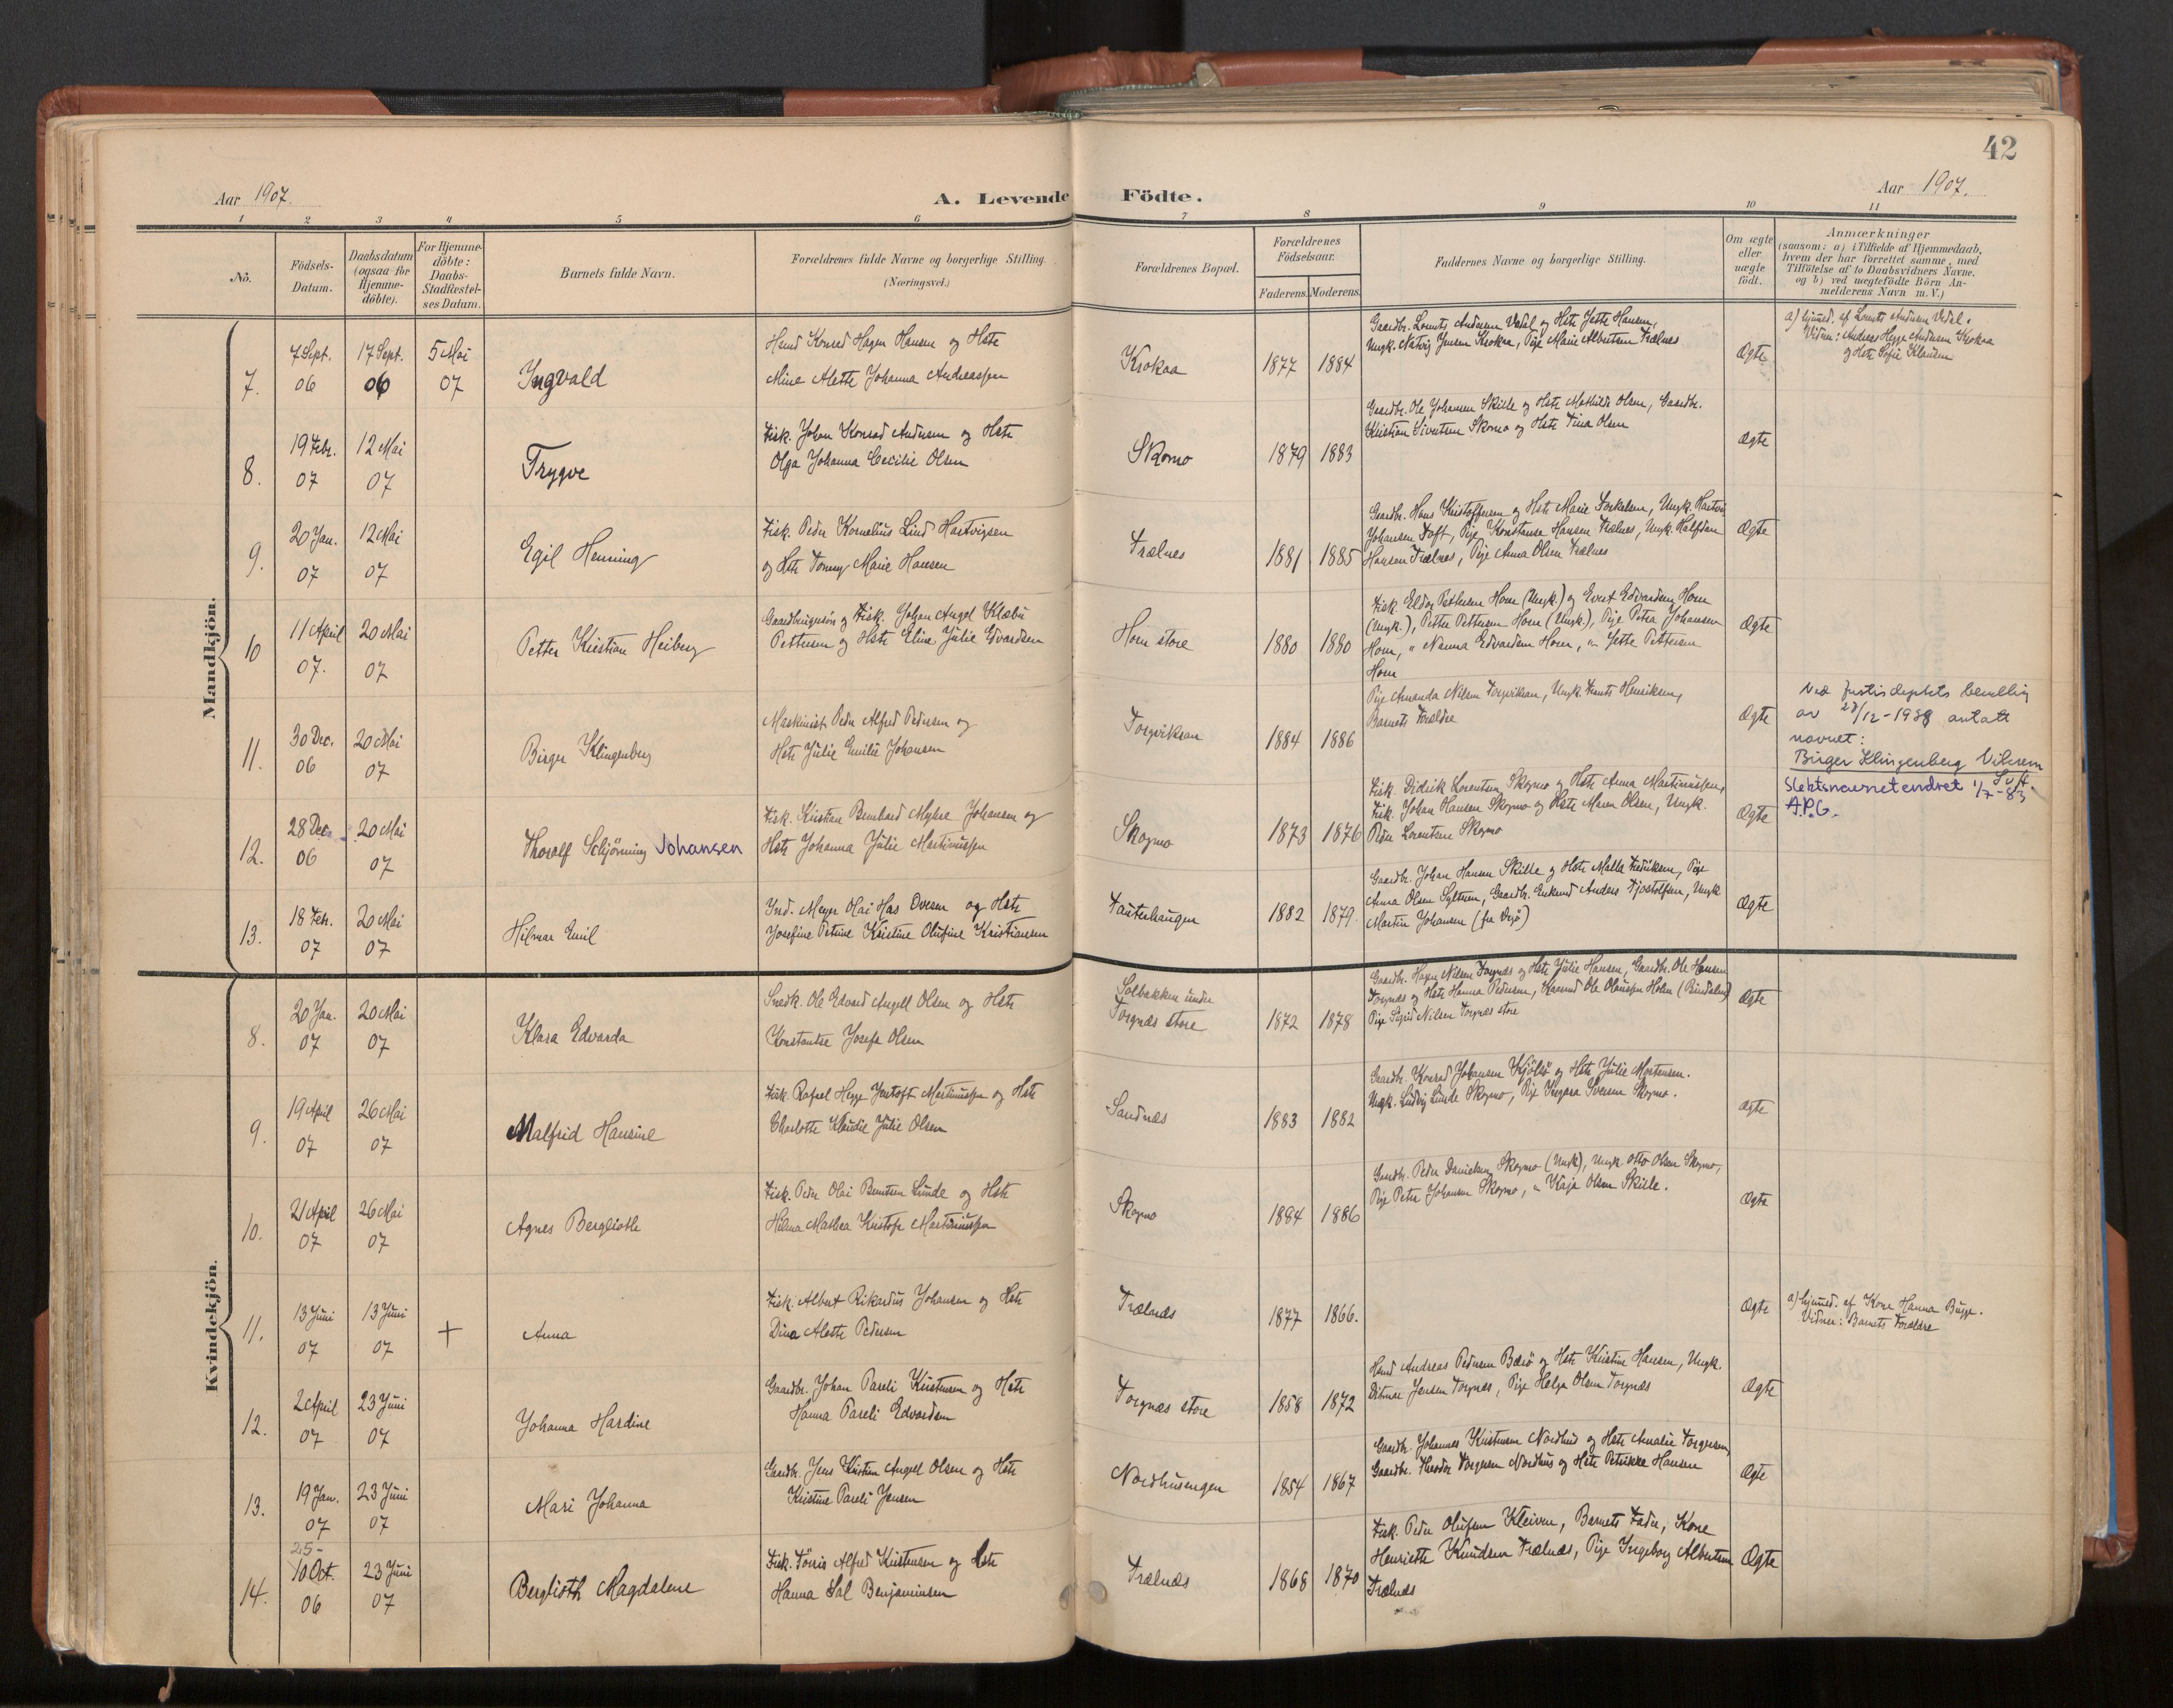 42
Aar 1907.
A. Levende Födte.
Aar 1907.
1 2 3 4 5 6 7 8 9 10 11
No.
Födsels-Datum.
Daabsdatum (ogsaa for Hjemme-döbte).
For Hjemme-döbte: Daabs-Stadfæstel-ses Datum.
Barnets fulde Navn.
Forældrenes fulde Navne og borgerlige Stilling.
(Næringsvei.)
Forældrenes Bopæl.
Forældrenes Födselsaar.
Faderens. Moderens.
Faddernes Navne og borgerlige Stilling.
Om ægte eller uægte födt.
Anmærkninger
(saasom: a) i Tilfælde af Hjemmedaab, hvem der har forrettet samme, med Tilföielse af to Daabsvidners Navne. og b) ved uægtefödte Börn An-melderens Navn m. V.)
Mandkjön.
7. 7 Sept. 06 17 Sept. 06 5 Mai 07
Ingvald
Konrad Hagen Hansen og Hstr
Aline Alette Johanna Andreassen
Krokaa
1877 1884
Gaardbr. Lorents Andersen Vedal og Hstr Jette Hansen,
Ungk. Jensen Krokaa, Pige Marie Albertsen Trælnes
Ægte
a) hjmd. af Lorents Andersen Vedal.
Vidner: Anders Hegge Andersen Krokaa
og Hstr Sofie Klausen
8. 19 Febr. 07 12 Mai 07
Trygve
Fisk. Johan Konrad Andersen og Hstr
Olga Johanna Cecilie Olsen
Skomo
1879 1883
Gaardbr. Ole Johansen Skille og Hstr Mathilde Olsen, Gaardbr.
Kristian Sivertsen Skomo og Hstr Tina Olsen
Ægte
9. 20 Jan. 07 12 Mai 07
Egil Henning
Fisk. Peder Kornelius Lind Hartvigsen
og Hstr Tomny Marie Hansen
Trælnes
1881 1885
Gaardbr. Hans Kristoffersen og Hstr Marie Torkelsen, Ungk. Hartvig
Johansen Toft, Pige Konstanse Hansen Trælnes, Ungk. Halfdan
Hansen Trælnes, Pige Anna Olsen Trælnes
Ægte
10 11 April 07. 20 Mai 07
Petter Kristian Heiberg
og Fisk. Johan Angel Klæbu
Pettersen og Hstr Eline Julie Edvardsen
Horn store
1880 1880
Fisk. Eldor Pettersen Horn (Ungk.) og Evert Edvardsen Horn
(Ungk.), Petter Pettersen Horn (Ungk.), Pige Petra Johansen
Horn, " Nanna Edvardsen Horn, " Jette Pettersen
Horn
Ægte
11. 30 Dec. 06 20 Mai 07
Birger Klingenberg
Maskinist Peder Alfred Pedersen og
Hstr Julie Emilie Johansen
Torgviksan
1884 1886
Pige Amanda Nilsen Torgviksan, Ungk. Henriksen,
Barnets Forældre
Ægte
Ved Justisdeptets bevilling
av 28/12-1938 antatt
navnet:
Birger Klingenberg Vilsrem
12. 28 Dec. 06 20 Mai 07
Thoralf Schjörning Johansen
Fisk. Kristian Bernhard Myhre Johansen og
Hstr Johanna Julie Martinussen
Skogmo
1873 1876
Fisk. Didrik Lorentsen Skogmo og Hstr Anna Martinussen,
Fisk. Johan Hansen Skogmo og Hstr Maren Olsen, Ungk.
Peder Lorentsen Skogmo
Ægte
Slektsnavnet endret 1/7-83
A.P.G.
13. 18 Febr. 07 20 Mai 07
Hilmar Emil
Ind. Meyer Olai Has Ovesen og Hstr
Josefine Petrine Kristine Olufine Kristiansen
Tautenhaugen
1882 1879.
Gaardbr. Johan Hansen Skille og Hstr Malla Fredriksen, Pige
Anna Olsen Sylteren, Gaardbr. Enkemd. Anders Tjostolfsen, Ungk
Martin Johansen (fra Vegö)
Ægte
Kvindekjön.
8. 20 Jan. 07 20 Mai 07
Klara Edvarda
Snedk. Ole Edvard Angell Olsen og Hstr
Konstantse Josefa Olsen
Solbakken under
Torgnæs store
1872 1878
Gaardbr. Hagen Nilsen Torgnæs og Hstr Julie Hansen, Gaardbr. Ole Hansen
Torgnæs og Hstr Hanna Pedersen, Ole Olaussen Holm (Bindalen)
Pige Sigrid Nilsen Torgnæs store
Ægte
9. 19 April 07 26 Mai 07
Malfrid Hansine
Fisk. Rafael Hegge Jentoft Martinussen og Hstr
Charlotte Klaudie Julie Olsen
Sandnæs
1883 1882
Gaardbr. Konrad Johansen Kjölsö og Hstr Julie Mortensen.
Ungk. Ludvig Lunde Skogmo, Pige Ingvara Iversen Skogmo.
Ægte
10. 21 April 07 26 Mai 07
Agnes Bergliothe
Fisk. Peder Olai Berntsen Lunde og Hstr
Hilma Mathea Kristofa Martinussen
Skogmo
1884 1886
Gaardbr. Peder Danielsen Skogmo (Ungk), Ungk Otto Olsen Skogmo,
Pige Petra Johansen Skogmo, " Kaja Olsen Skille.
Ægte
11. 13 Juni 07 13 Juni 07 +
Anna
Fisk. Albert Rikardus Johansen og Hstr
Dina Alette Pedersen
Trælnæs
1877 1866.
Ægte
a) hjmd. af Kone Hanna Bugge.
Vidner: Barnets Forældre
12. 2 April 07 23 Juni 07
Johanna Hardine
Gaardbr. Johan Pareli Kristensen og Hstr
Hanna Pareli Edvardsen
Torgnæs store
1858 1872
Andreas Pedersen Bærö og Hstr Kristine Hansen, Ungk.
Ditmar Jensen Torgnæs, Pige Helga Olsen Torgnæs
Ægte
13. 19 Jan. 07 23 Juni 07
Mari Johanna
Gaardbr. Jens Kristian Angell Olsen og Hstr
Kristine Pareli Jensen
Nordhusengen
1854 1867
Gaardbr. Johannes Kristensen Nordhus og Hstr Amalie Torgersen,
Gaardbr. Theodor Torgersen Nordhus og Hstr Petrikke Hansen
Ægte
14. 25- 10 Oct. 06 23 Juni 07
Berglioth Magdalene
Fisk. Törris Alfred Kristensen og Hstr
Hanna Sal Benjaminsen
Trælnæs
1868 1870
Fisk. Peder Olufsen Kleiven, Barnets Fader, Kone
Henriette Knudsen Trælnæs, Pige Ingeborg Albertsen
Trælnæs
Ægte